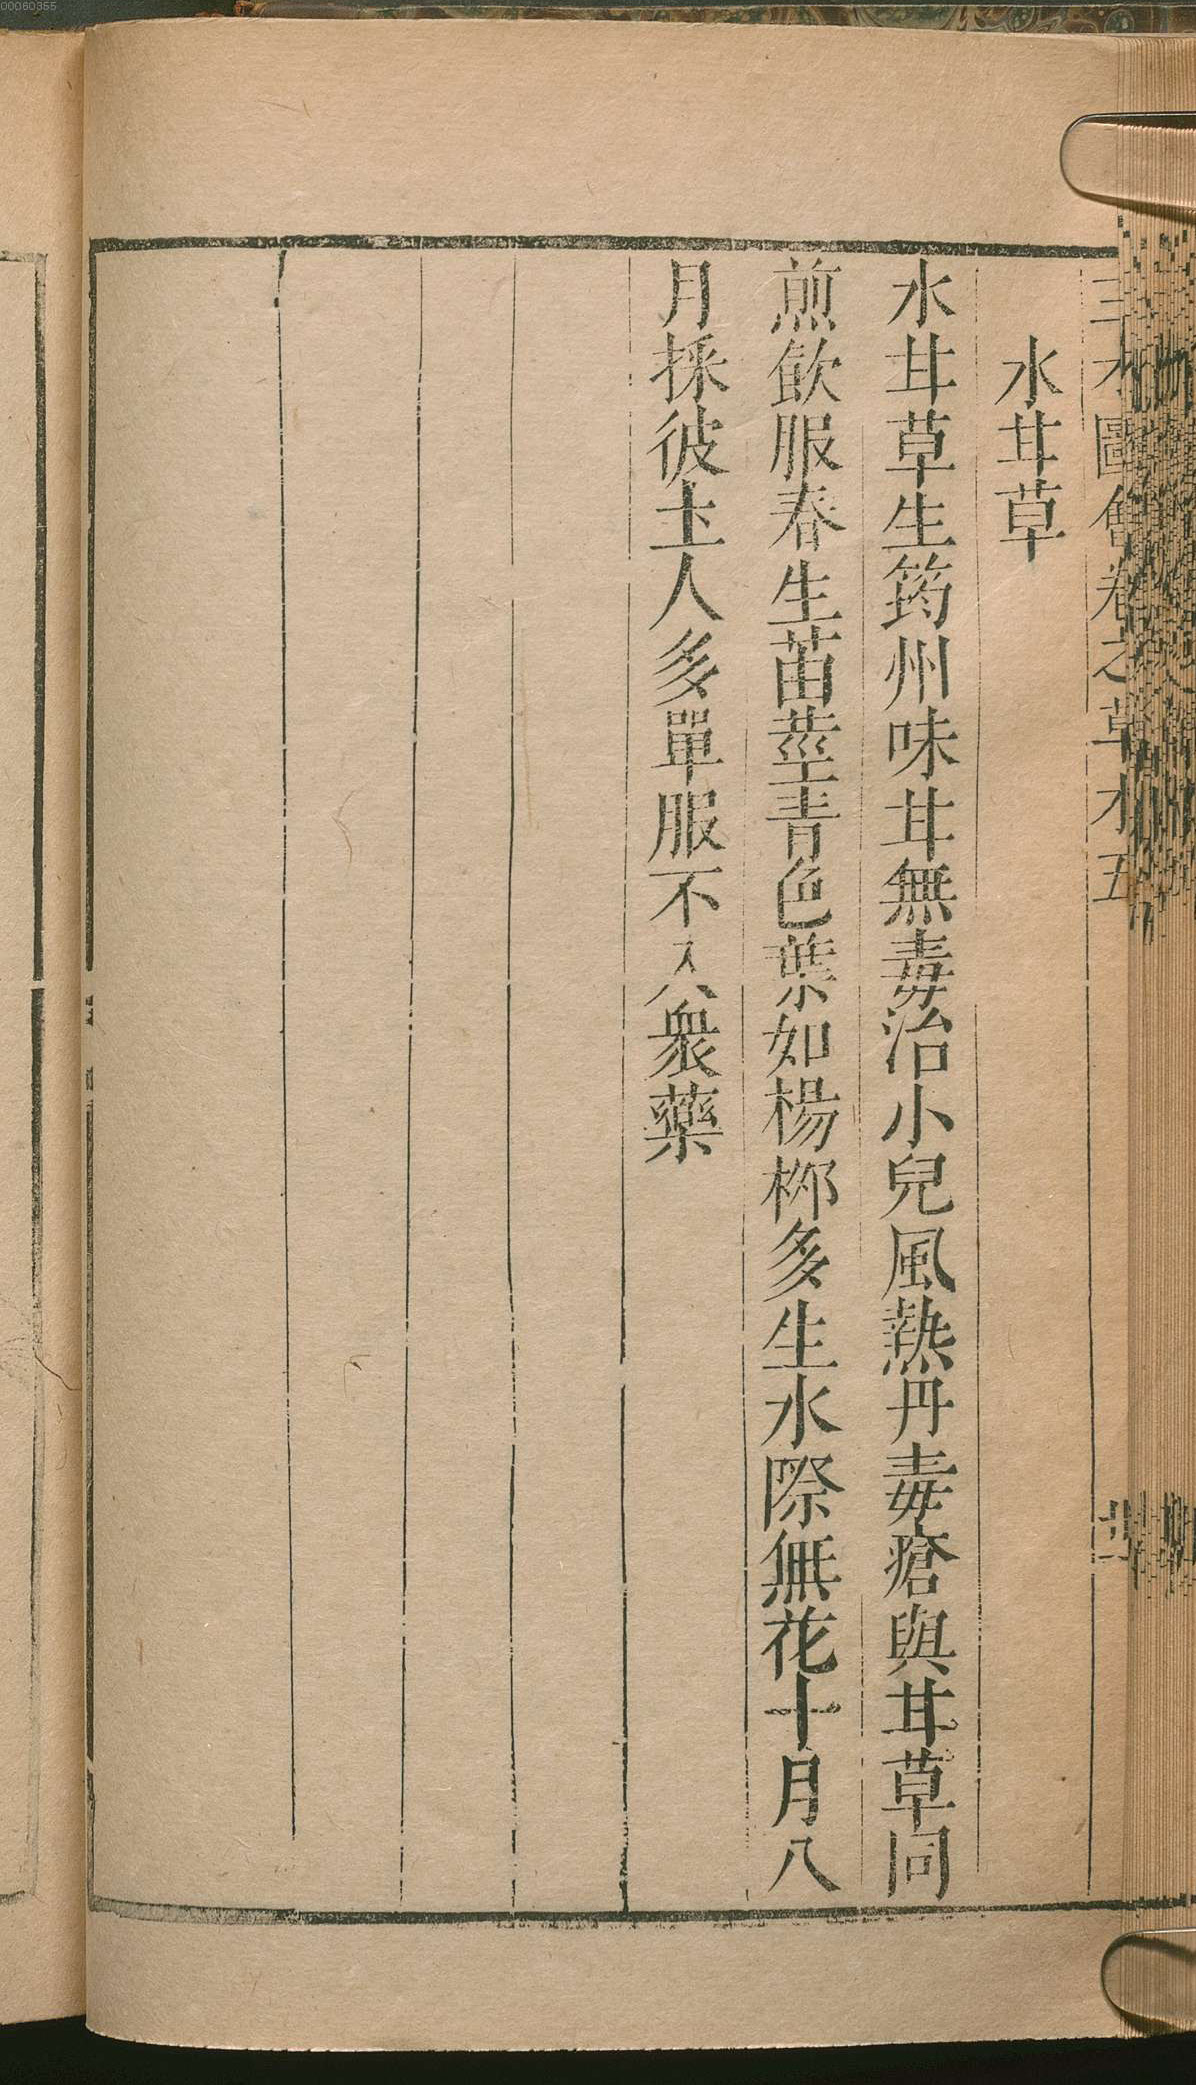 00060355
三才圖會卷之草木五
水甘草
水甘草生筠州味甘無毒治小兒風熱丹毒瘡與甘草同
煎飲服春生苗莖青色葉如楊桺多生水際無花十月八
月採彼土人多單服不入衆藥